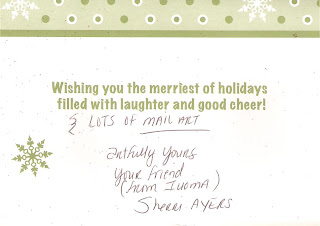 Wishing you the merriest of holidays
filled with laughter and good cheer!
& LOTS OF MAIL ART
Artfully Yours
Your friend
(from IUOMA)
Sherri AYERS